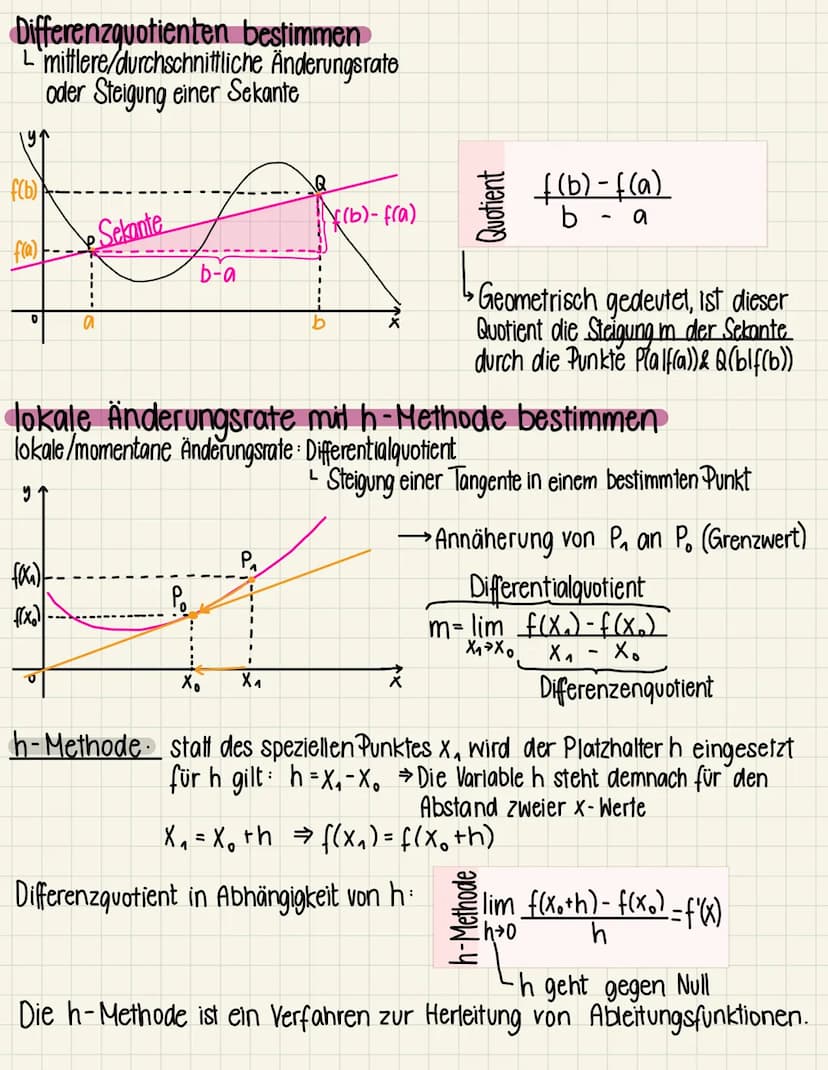 Differenzquotienten bestimmen
└ mittlere/durchschnittliche Änderungsrate
oder Steigung einer Sekante
y
f(b)
Q
Sekante
f(b)-f(a)
P
f(a)
b-a
0
a
b
x
Quotient
f(b)-f(a)
b - a
↳ Geometrisch gedeutet, ist dieser
Quotient die Steigung m der Sekante
durch die Punkte P(a|f(a)) & Q(b|f(b))
lokale Änderungsrate mit h-Methode bestimmen
lokale/momentane Änderungsrate: Differentialquotient
└ Steigung einer Tangente in einem bestimmten Punkt
y
f(x₁)
P₁
f(x₀)
P₀
0
x₀
x₁
x
→ Annäherung von P₁ an P₀ (Grenzwert)
Differentialquotient
m = lim f(x₁)-f(x₀)
x₁→x₀ x₁ - x₀
Differenzenquotient
h-Methode: statt des speziellen Punktes x₁ wird der Platzhalter h eingesetzt
für h gilt: h = x₁-x₀ ⇒ Die Variable h steht demnach für den
Abstand zweier x-Werte
x₁ = x₀ + h ⇒ f(x₁) = f(x₀+h)
Differenzquotient in Abhängigkeit von h:
h-Methode
lim f(x₀+h)-f(x₀) = f'(x)
h→0 h
└ h geht gegen Null
Die h-Methode ist ein Verfahren zur Herleitung von Ableitungsfunktionen.